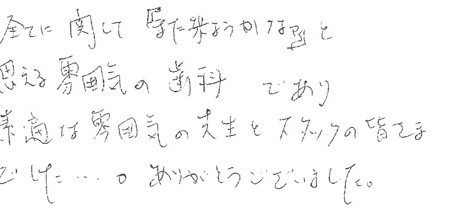 全てに関して『また来ようかな』と
思える雰囲気の歯科 であり
素適な雰囲気の先生とスタッフの皆さま
でした…。ありがとうございました。